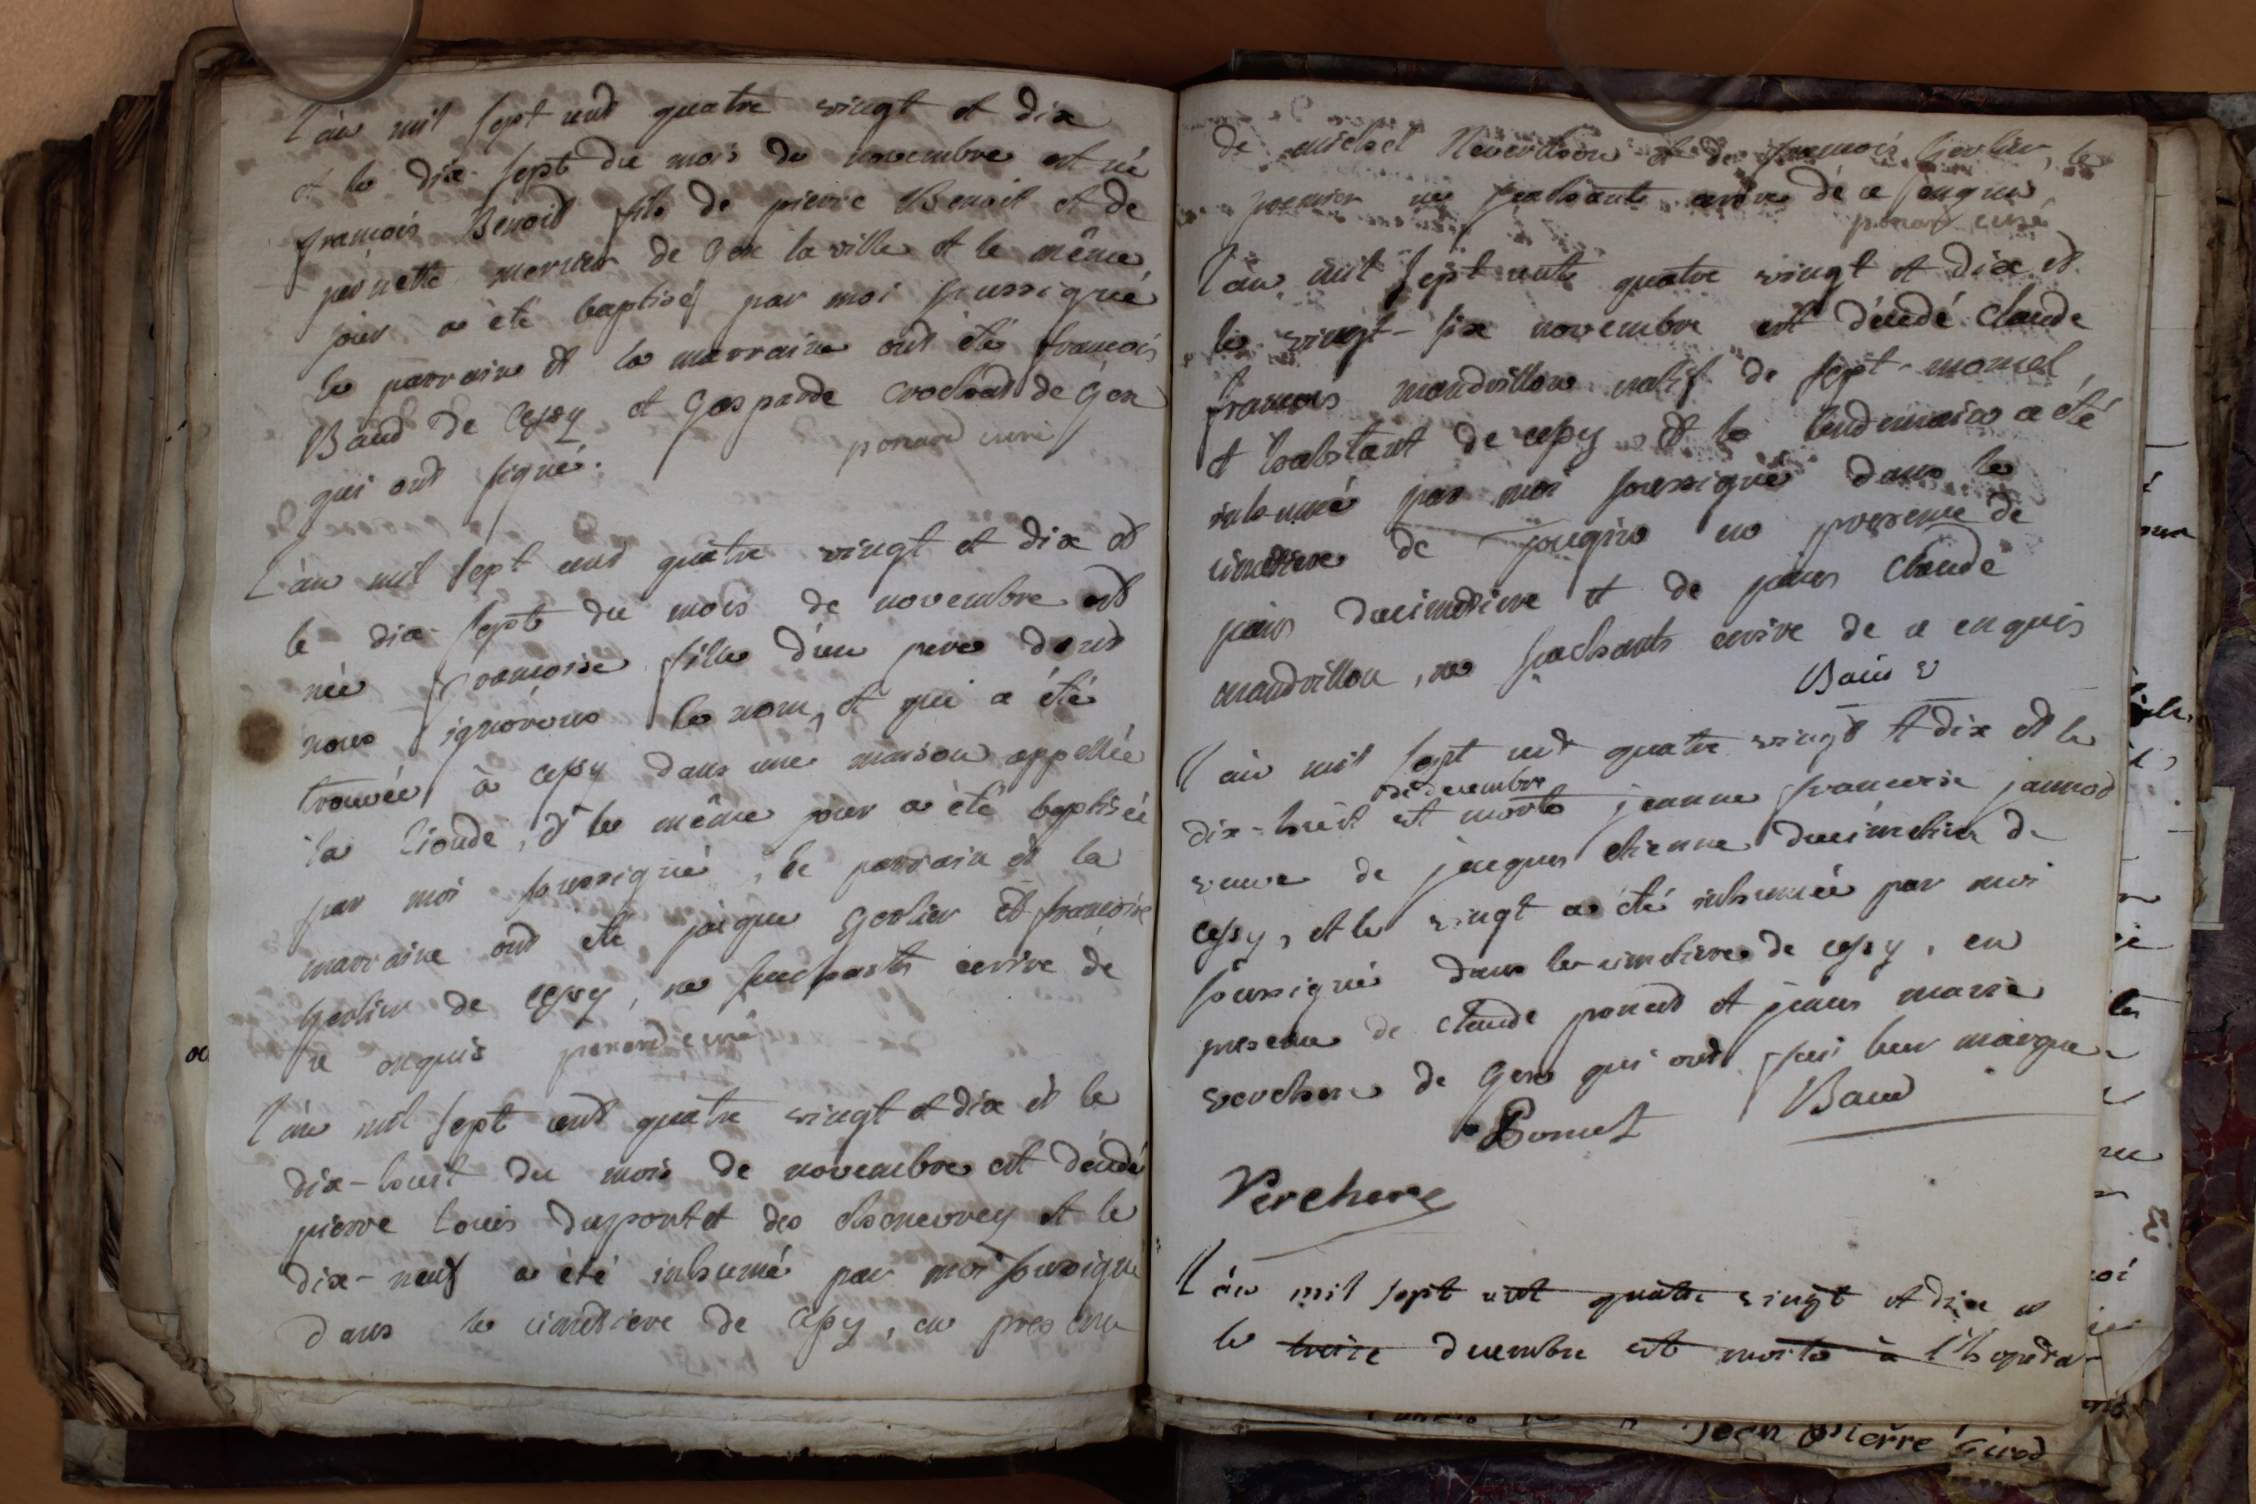 l'an mil sept cent quatre vingt et dix
et le dix-sept du mois de novembre est né
françois Benoit fils de pierre Benoit et de
pernette mercier de Gex la ville et le même
jour a été baptisé par moi soussigné
le parrain et la marraine ont été françois
Baud de Cessy et Gasparde crochat de Gex
qui ont signé. ponard curé
l'an mil sept cent quatre vingt et dix et
le dix-sept du mois de novembre est
née françoise fille d'un pere dont
nous ignorons le nom, et qui a été
trouvée à cessy dans une maison appellée
la , et le même jour a été baptisée
par moi soussigné, le parrain et la
marraine ont été jaique Gerlier et françoise
Gerlier de cessy, ne sachants ecrire de
ce enquis ponard curé
l'an mil sept cent quatre vingt et dix et le
dix-huit du mois de novembre est décédé
pierre louis dupontet des et le
dix-neuf a été inhumé par moi soussigné
dans le cimetiere de Cessy, en presence
de michel et de françois Gerlier, le
premier ne sachant ecrire de ce enquis
ponard curé
l'an mil sept cents quatre vingt et dix et
le vingt-six novembre est décédé claude
françois mandrillon natif de sept-moncel
et habitant de cessy et le lendemain a été
inhumé par moi soussigné dans le
cimetiere de en presence de
jean ducimetiere et de jean claude
mandrillon, ne sachants ecrire de ce enquis
Baud
l'an mil sept cent quatre vingt et dix et le
de decembre
dix-huit est morte jeanne françoise jannod
veuve de jacques etienne ducimetiere de
cessy, et le vingt a été inhumée par moi
soussigné dans le cimetiere de cessy, en
presence de claude ponard et jean marie
verchere de Gex qui ont fait leur marque
Baud
Verchere
l'an mil sept cent quatre vingt et dix et
le treize decembre est morte à l'hopita
Jean Pierre Girod